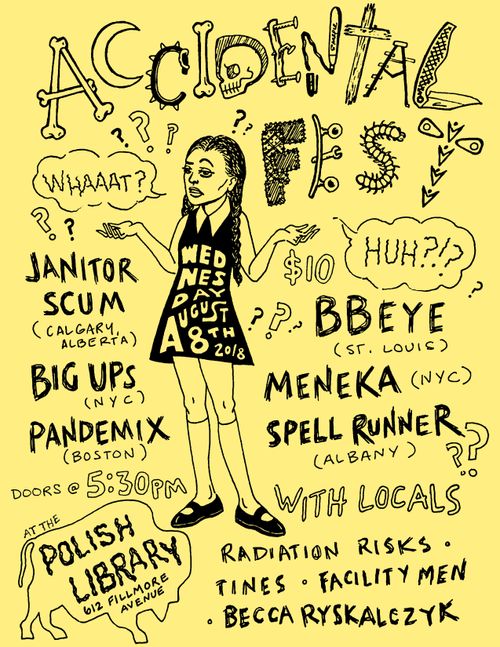 ACCIDENTAL
FEST
WHAAAT?
HUH?!?
WED
NES
DAY
AUGUST
8TH
2018
$10
JANITOR
SCUM
(CALGARY,
ALBERTA)
BIG UPS
(NYC)
PANDEMIX
(BOSTON)
BBEYE
(ST. LOUIS)
MENEKA (NYC)
SPELL RUNNER
(ALBANY)
DOORS @ 5:30PM
AT THE
POLISH
LIBRARY
612 FILLMORE
AVENUE
WITH LOCALS
RADIATION RISKS •
TINES • FACILITY MEN
• BECCA RYSKALCZYK